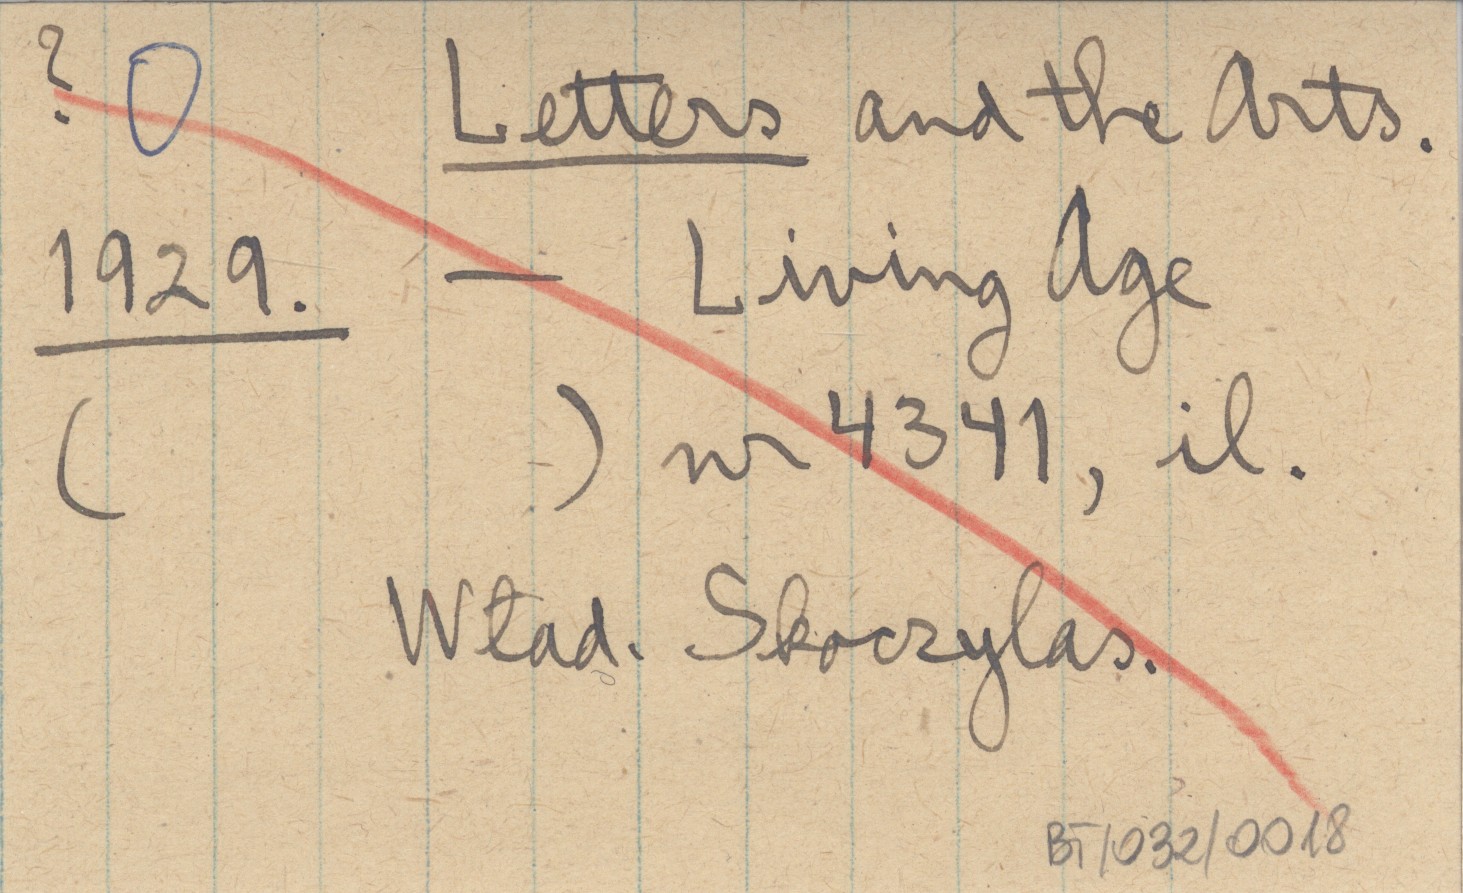 ? 0 Letters and the Arts.
1929. — Living Age
( ) nr 4341, il.
Wład. Skoczylas.
BT/032/0018